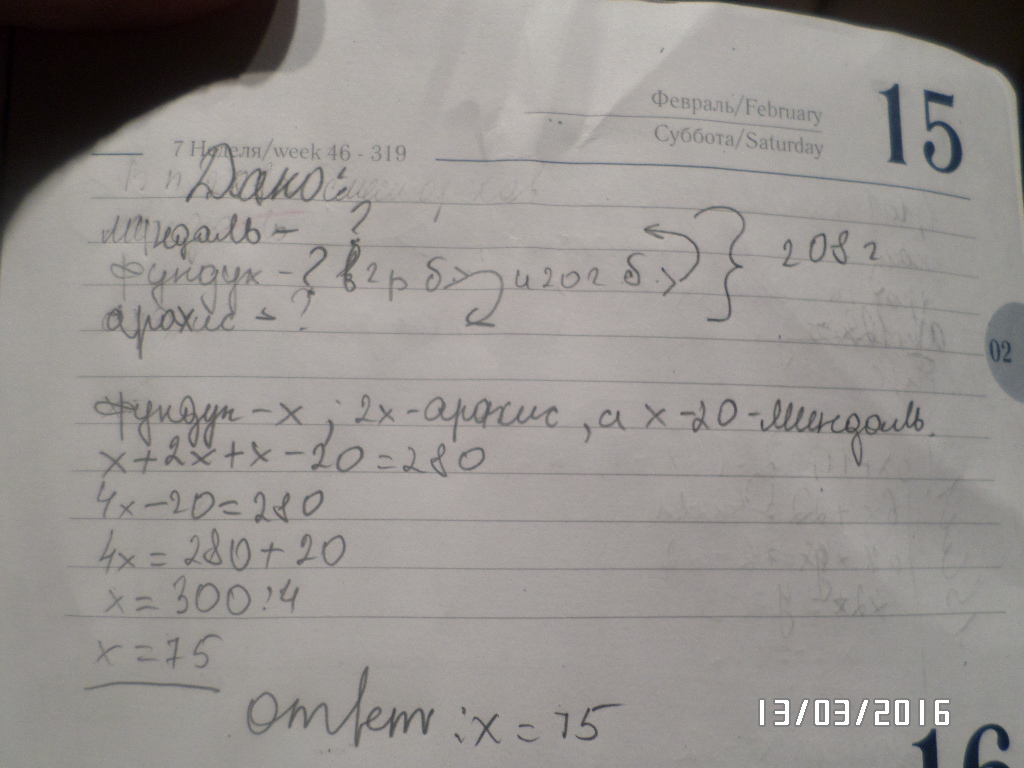 Февраль/February
Суббота/Saturday
15
7 Неделя/week 46 - 319
Дано:
миндаль - ?
фундук - ? в 2 р б > и 20 г б. >
арахис - ?
208 г
02
фундук - x ; 2x - арахис , а x - 20 - миндаль.
x + 2x + x - 20 = 280
4x - 20 = 280
4x = 280 + 20
x = 300 : 4
x = 75
ответ : x = 75
13/03/2016
16